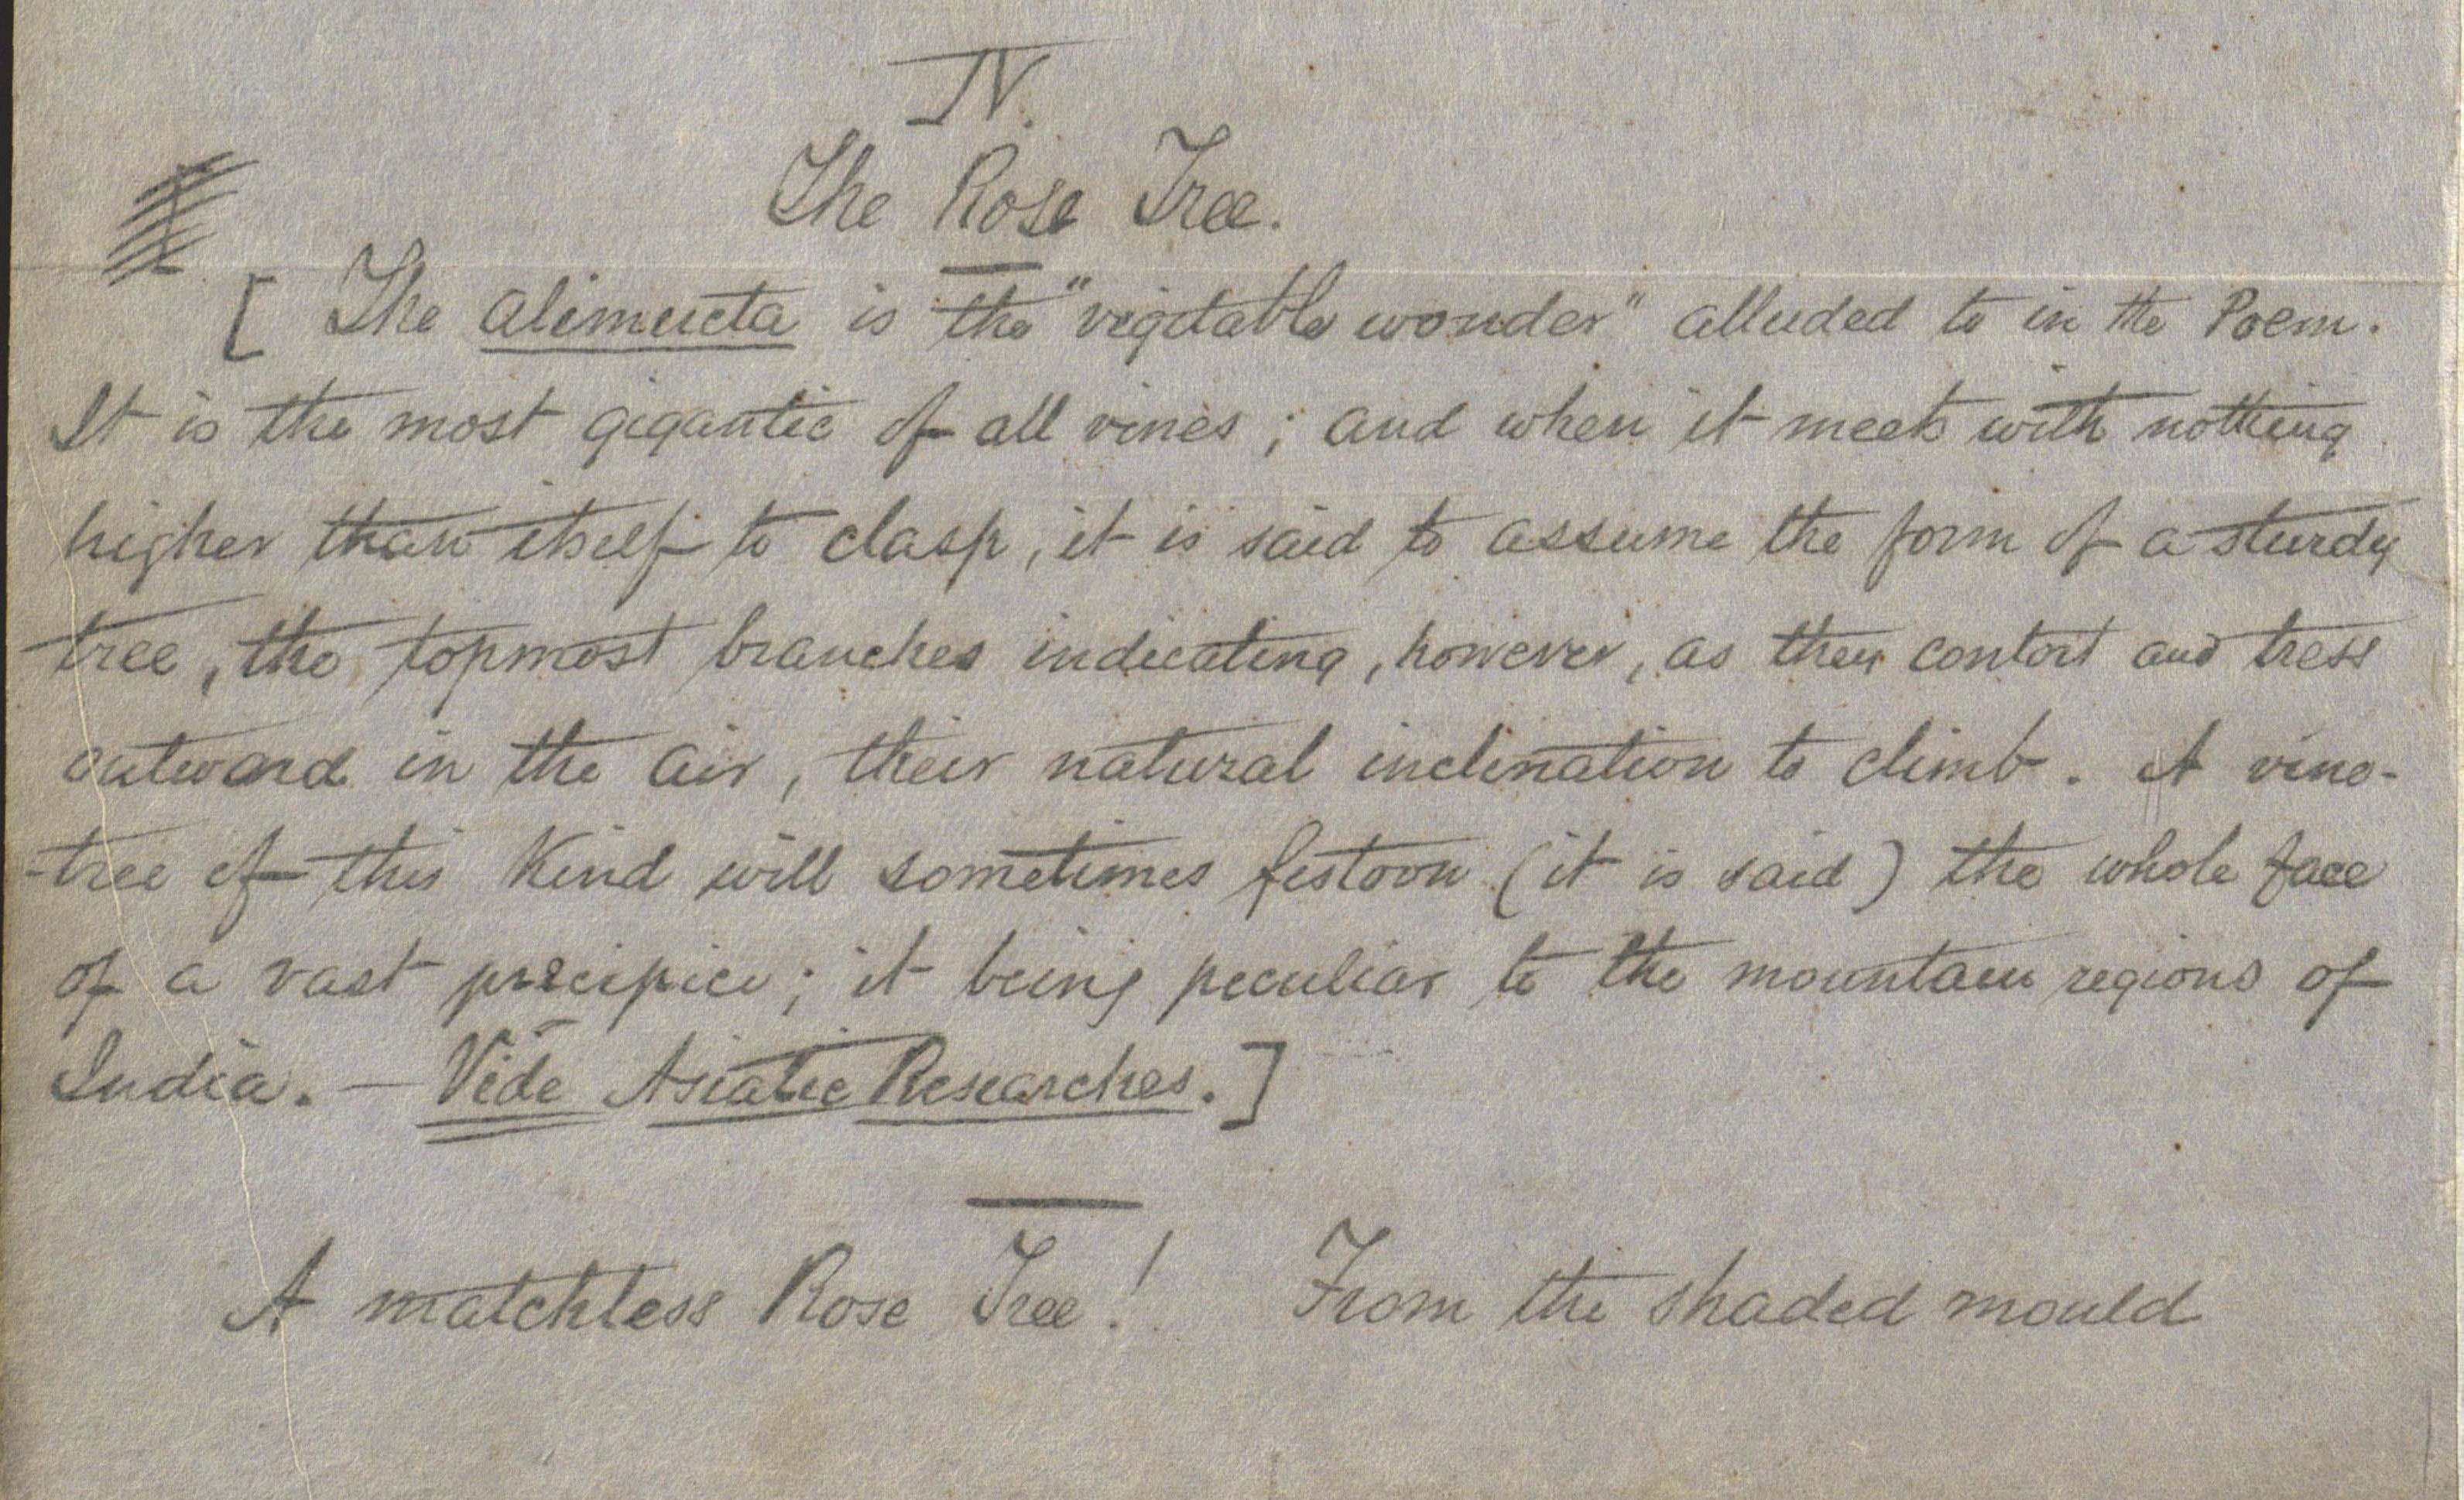 IV.
The Rose Tree.
[ The alimucta is the "vegetable wonder" alluded to in the Poem.
It is the most gigantic of all vines; and when it meets with nothing
higher than itself to clasp, it is said to assume the form of a sturdy
tree, the topmost branches indicating, however, as they contort and tress
outward in the air, their natural inclination to climb. A vine-
-tree of this kind will sometimes festoon (it is said) the whole face
of a vast precipice; it being peculiar to the mountain regions of
India. — Vide Asiatic Researches.]
A matchless Rose Tree! From the shaded mould